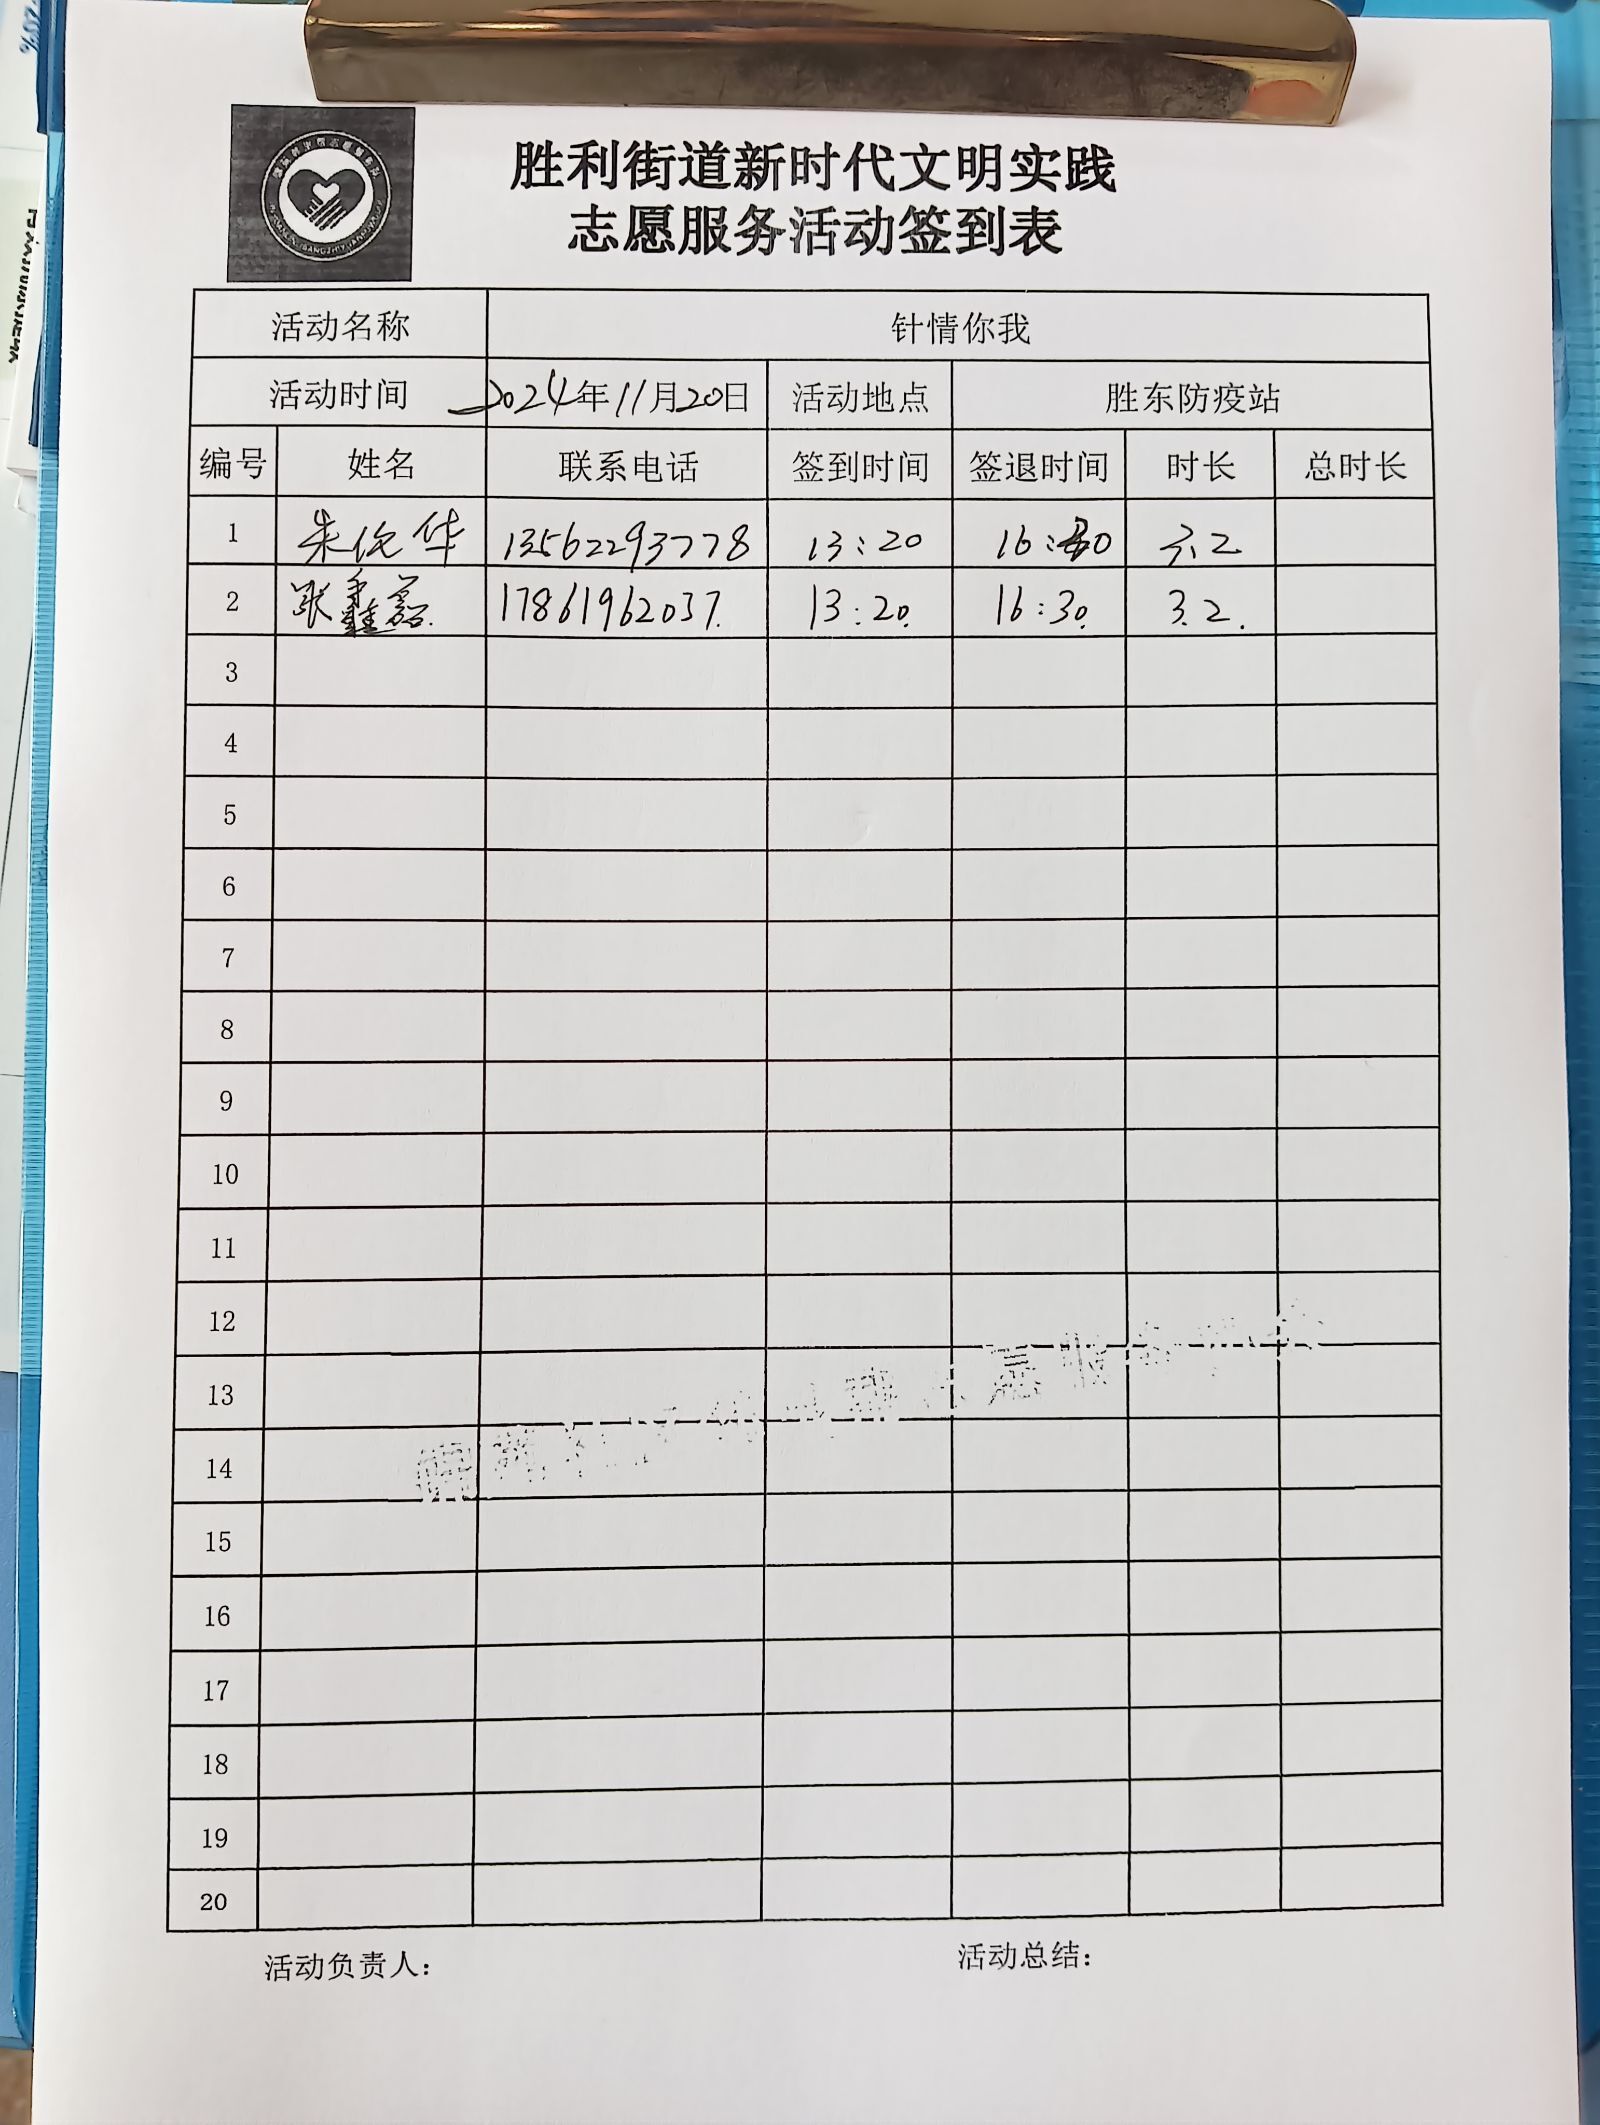 胜利街道新时代文明实践
志愿服务活动签到表
活动名称 针情你我
活动时间 2024年11月20日 活动地点 胜东防疫站
编号 姓名 联系电话 签到时间 签退时间 时长 总时长
1 朱伦华 13562293778 13:20 16:30 3.2
2 张鑫磊 17861962037. 13:20. 16:30. 3.2.
3
4
5
6
7
8
9
10
11
12
13
14
15
16
17
18
19
20
活动负责人： 活动总结：